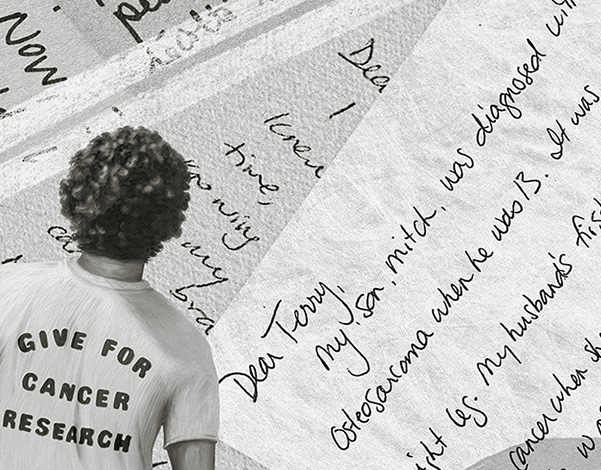 Now
Dea
I
Knew
time,
knowing
my
bra
ca
Dear Terry,
My son, mitch, was diagnosed with
Osteosarcoma when he was 13. It was
ght leg. My husband's firs
cancer when sh
GIVE FOR
CANCER
RESEARCH